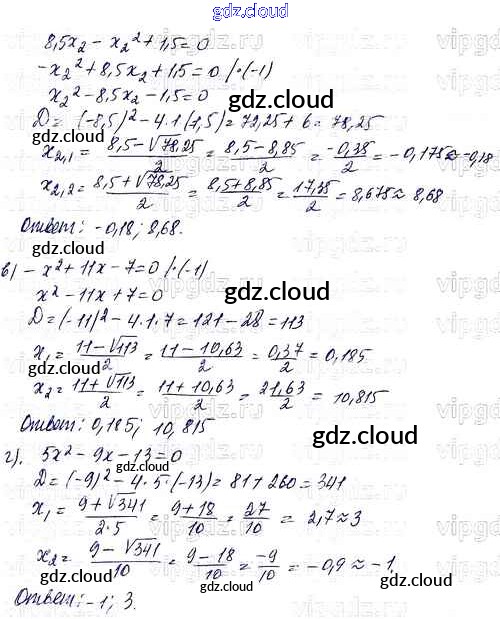 gdz.cloud
8,5x₂ - x₂² + 1,5 = 0
-x₂² + 8,5x₂ + 1,5 = 0 /·(-1)
x₂² - 8,5x₂ - 1,5 = 0
gdz.cloud
D = (-8,5)² - 4·1·(1,5) = 72,25 + 6 = 78,25
x₂,₁ = (8,5 - √78,25)/2 = (8,5 - 8,85)/2 = -0,35/2 = -0,175 ≈ -0,18
x₂,₂ = (8,5 + √78,25)/2 = (8,5 + 8,85)/2 = 17,35/2 = 8,675 ≈ 8,68
Ответ: -0,18; 8,68.
в) -x² + 11x - 7 = 0 /·(-1)
x² - 11x + 7 = 0
gdz.cloud
D = (-11)² - 4·1·7 = 121 - 28 = 113
x₁ = (11 - √113)/2 = (11 - 10,63)/2 = 0,37/2 = 0,185
gdz.cloud
x₂ = (11 + √113)/2 = (11 + 10,63)/2 = 21,63/2 = 10,815
Ответ: 0,185; 10,815
gdz.cloud
г). 5x² - 9x - 13 = 0
gdz.cloud
D = (-9)² - 4·5·(-13) = 81 + 260 = 341
x₁ = (9 + √341)/(2·5) = (9 + 18)/10 = 27/10 = 2,7 ≈ 3
gdz.cloud
x₂ = (9 - √341)/10 = (9 - 18)/10 = -9/10 = -0,9 ≈ -1.
gdz.cloud
Ответ: -1; 3.
gdz.cloud